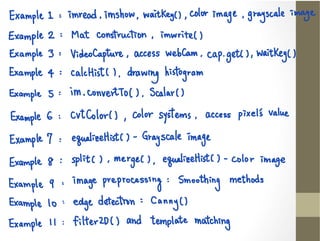 Example 1 : imread, imshow, waitKey(), color image, grayscale image
Example 2 : Mat construction, imwrite()
Example 3 : VideoCapture, access webcam, cap.get(), waitKey()
Example 4 : calcHist(), drawing histogram
Example 5 : im.convertTo(), Scalar()
Example 6 : CvtColor(), color systems, access pixel's value
Example 7 : equalizeHist() - Grayscale image
Example 8 : split(), merge(), equalizeHist() - color image
Example 9 : image preprocessing : Smoothing methods
Example 10 : edge detection : Canny()
Example 11 : filter2D() and template matching